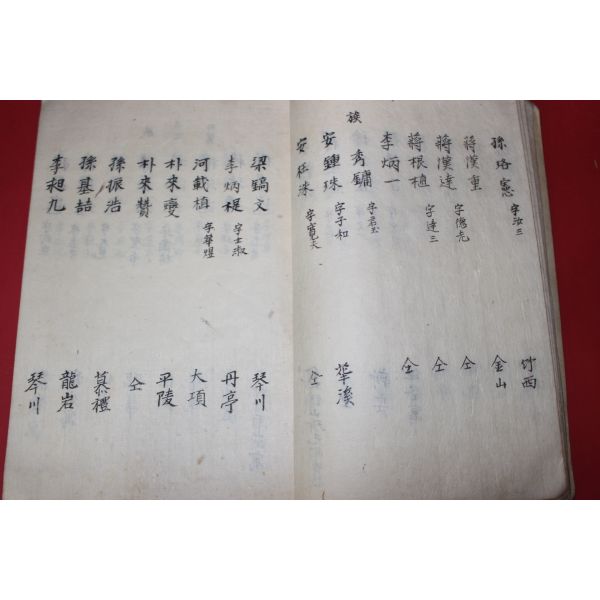 竹西
孫珞憲 字汝三 金山
蔣漢重 仝
蔣漢達 仝
蔣根植 字達三 仝
李炳一
族 秀鏞 字君玉 華溪
安鍾珠 字子和 仝
安 洙 字寬夫
梁鎬文 琴川
李炳禔 字士淑 丹亭
河載植 字華煜 大項
朴來燮 平陵
朴來贊 仝
孫振浩 慕禮
孫基喆 龍岩
李昶九 琴川